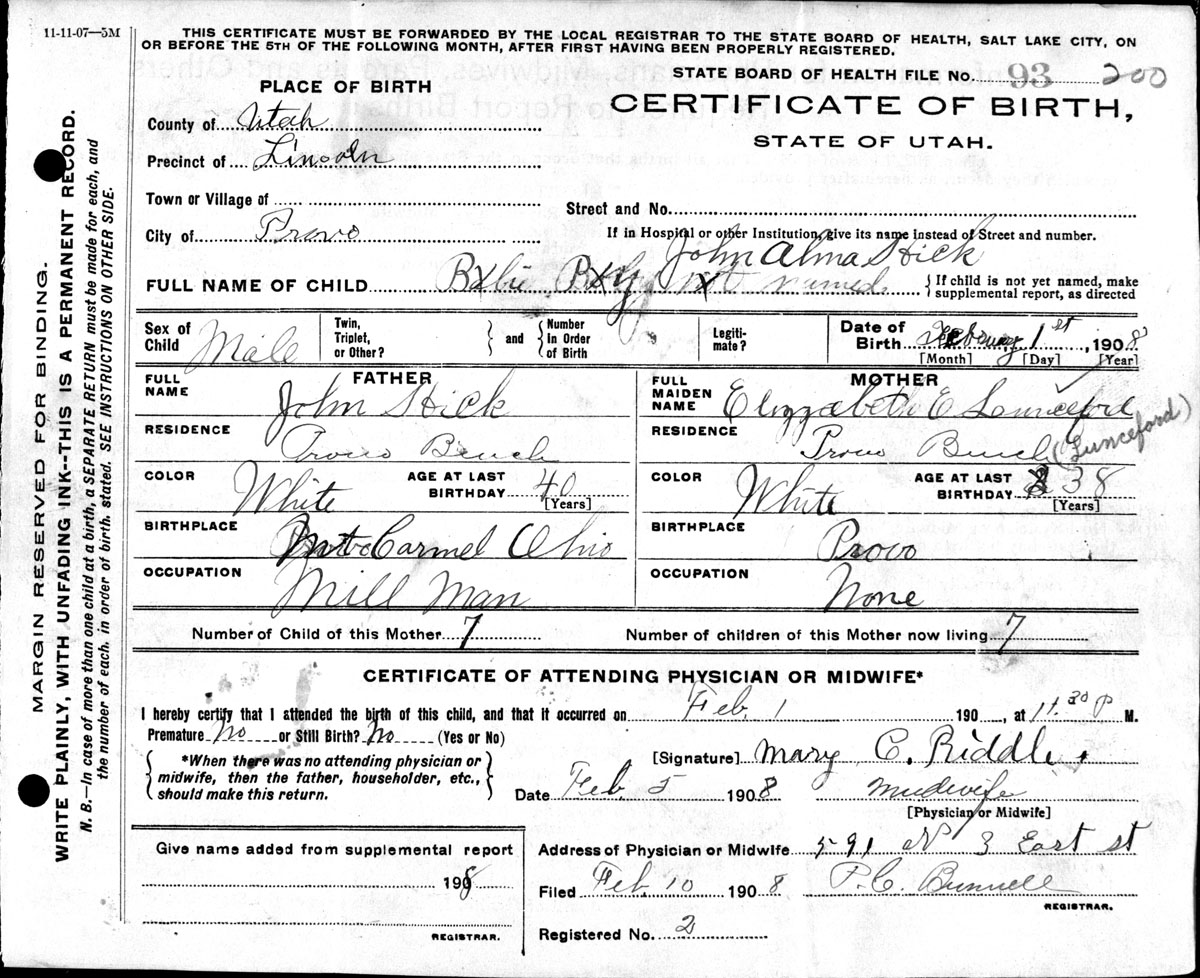 11-11-07—5M
THIS CERTIFICATE MUST BE FORWARDED BY THE LOCAL REGISTRAR TO THE STATE BOARD OF HEALTH, SALT LAKE CITY, ON
OR BEFORE THE 5TH OF THE FOLLOWING MONTH, AFTER FIRST HAVING BEEN PROPERLY REGISTERED.
STATE BOARD OF HEALTH FILE No. 93 200
PLACE OF BIRTH
CERTIFICATE OF BIRTH,
STATE OF UTAH.
County of Utah
Precinct of Lincoln
Town or Village of
Street and No.
City of Provo
If in Hospital or other Institution, give its name instead of Street and number.
John Alma Stick
FULL NAME OF CHILD not named
If child is not yet named, make
supplemental report, as directed
Sex of Child Male
Twin, Triplet, or Other?
and
Number In Order of Birth
Legiti-mate?
Date of Birth February 1st, 1908
[Month] [Day] [Year]
FATHER
FULL NAME John Stick
RESIDENCE Provo Bench
COLOR White
AGE AT LAST BIRTHDAY 40 [Years]
BIRTHPLACE Carmel Ohio
OCCUPATION Mill Man
MOTHER
FULL MAIDEN NAME Elizzabeth E Lunceford
(Lunceford)
RESIDENCE Provo Bench
COLOR White
AGE AT LAST BIRTHDAY 38 [Years]
BIRTHPLACE Provo
OCCUPATION None
Number of Child of this Mother 7
Number of children of this Mother now living 7
CERTIFICATE OF ATTENDING PHYSICIAN OR MIDWIFE*
I hereby certify that I attended the birth of this child, and that it occurred on Feb. 1 190 , at 11.30 P M.
Premature No or Still Birth? No (Yes or No)
*When there was no attending physician or
midwife, then the father, householder, etc.,
should make this return.
[Signature] Mary C. Riddle.
Date Feb. 5 1908
Midwife
[Physician or Midwife]
Give name added from supplemental report
1908
REGISTRAR.
Address of Physician or Midwife 591 N 3 East st
Filed Feb. 10 1908
P. C. Bunnell
REGISTRAR.
Registered No. 2
MARGIN RESERVED FOR BINDING.
WRITE PLAINLY, WITH UNFADING INK--THIS IS A PERMANENT RECORD.
N. B.—In case of more than one child at a birth, a SEPARATE RETURN must be made for each, and
the number of each, in order of birth, stated. SEE INSTRUCTIONS ON OTHER SIDE.